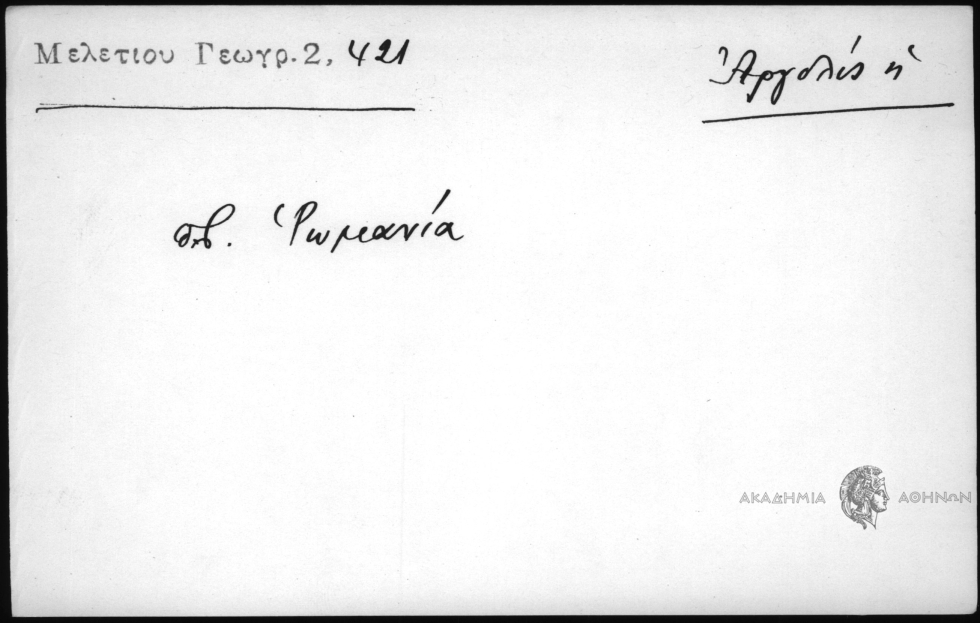 Μελετιου Γεωγρ. 2, 421
Ἀργολίς ἡ
σβ. Ῥωμανία
ΑΚΑΔΗΜΙΑ ΑΘΗΝΩΝ